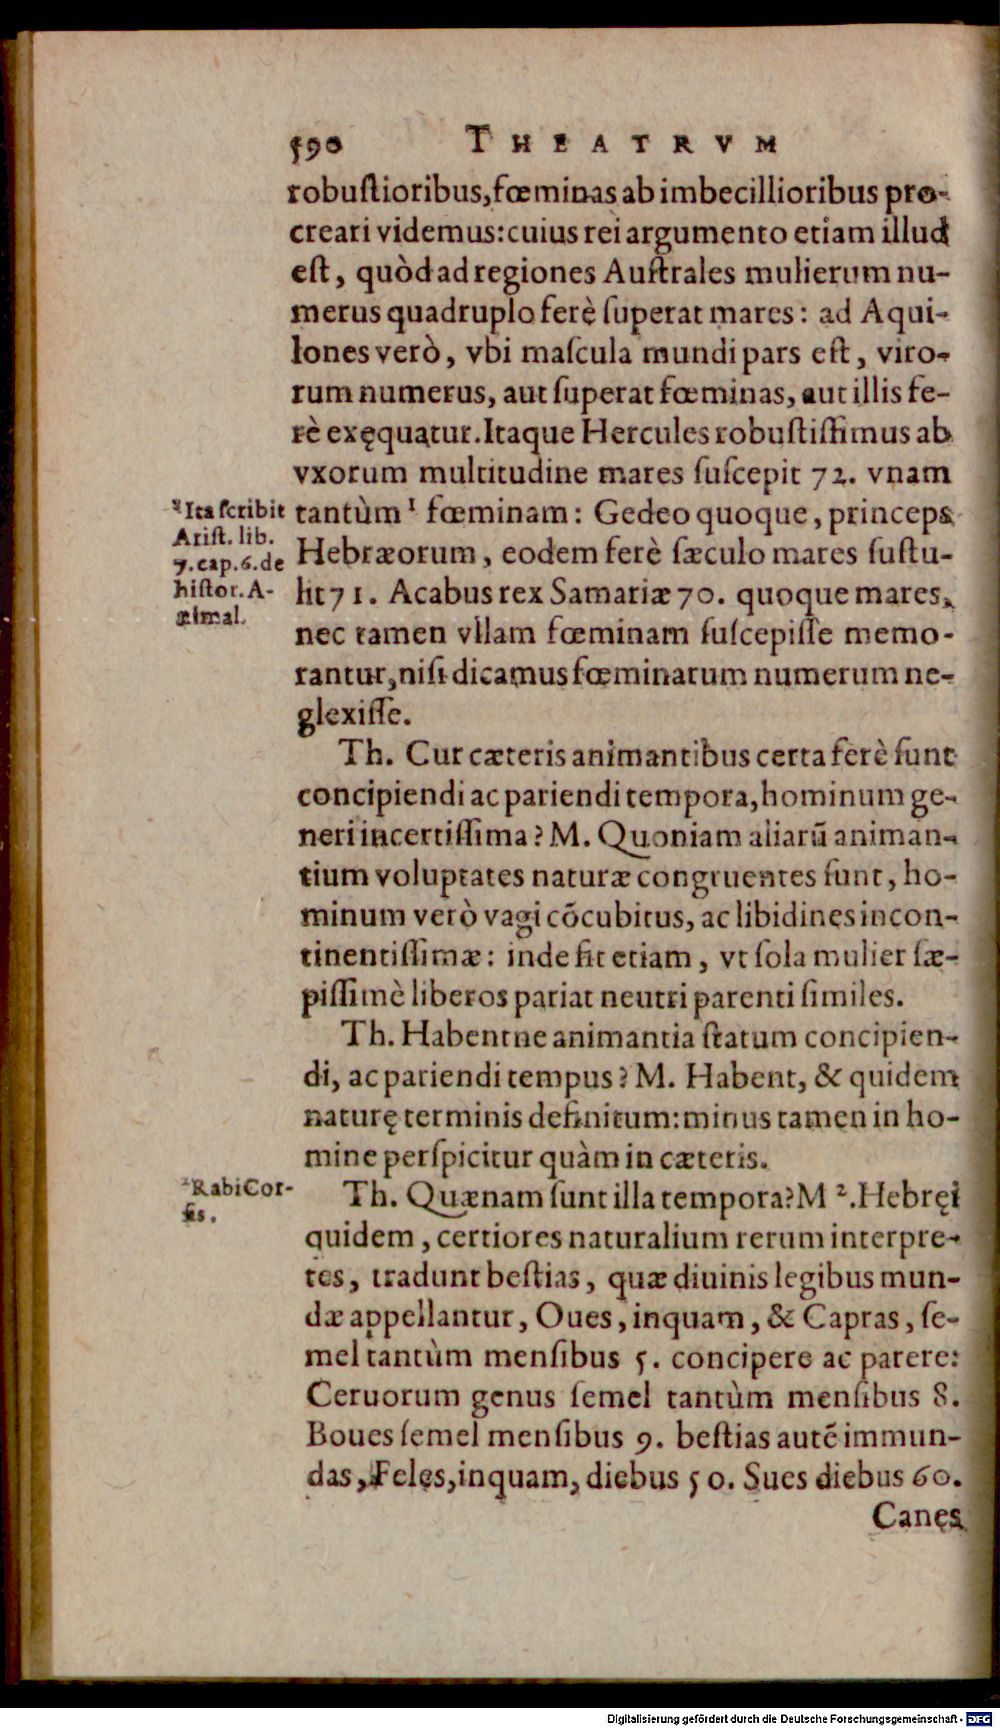 590 THEATRVM
robuſtioribus, fœminas ab imbecillioribus pro-
creari videmus: cuius rei argumento etiam illud
eſt, quòd ad regiones Auſtrales mulierum nu-
merus quadruplo ferè ſuperat mares: ad Aqui-
lones verò, vbi maſcula mundi pars eſt, viro-
rum numerus, aut ſuperat fœminas, aut illis fe-
rè exęquatur. Itaque Hercules robuſtiſſimus ab
vxorum multitudine mares ſuſcepit 72. vnam
tantùm¹ fœminam: Gedeo quoque, princeps
Hebræorum, eodem ferè ſæculo mares ſuſtu-
lit 71. Acabus rex Samariæ 70. quoque mares,
nec tamen vllam fœminam ſuſcepiſſe memo-
rantur, niſi dicamus fœminarum numerum ne-
glexiſſe.
¹ Ita ſcribit
Ariſt. lib.
7. cap. 6. de
hiſtor. A-
nimal.
Th. Cur cæteris animantibus certa ferè ſunt
concipiendi ac pariendi tempora, hominum ge-
neri incertiſſima? M. Quoniam aliarū animan-
tium voluptates naturæ congruentes ſunt, ho-
minum verò vagi cōcubitus, ac libidines incon-
tinentiſſimæ: inde fit etiam, vt ſola mulier ſæ-
piſſimè liberos pariat neutri parenti ſimiles.
Th. Habentne animantia ſtatum concipien-
di, ac pariendi tempus? M. Habent, & quidem
naturę terminis definitum: minus tamen in ho-
mine perſpicitur quàm in cæteris.
Th. Quænam ſunt illa tempora? M ². Hebręi
quidem, certiores naturalium rerum interpre-
tes, tradunt beſtias, quæ diuinis legibus mun-
dæ appellantur, Oues, inquam, & Capras, ſe-
mel tantùm menſibus 5. concipere ac parere:
Ceruorum genus ſemel tantùm menſibus 8.
Boues ſemel menſibus 9. beſtias autē immun-
das, Feles, inquam, diebus 50. Sues diebus 60.
² Rabi Cor-
ſis.
Canes
Digitalisierung gefördert durch die Deutsche Forschungsgemeinschaft - DFG